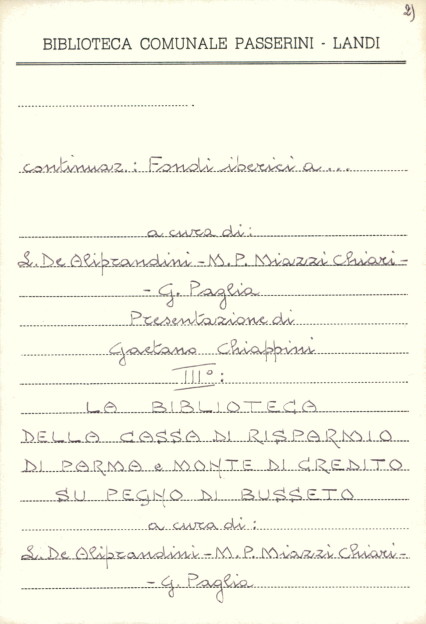 2)
BIBLIOTECA COMUNALE PASSERINI - LANDI
continuaz.: Fondi iberici a...
a cura di:
L. De Aliprandini - M. P. Miazzi Chiari -
- G. Paglia
Presentazione di
Gaetano Chiappini
IIIº:
LA BIBLIOTECA
DELLA CASSA DI RISPARMIO
DI PARMA e MONTE DI CREDITO
SU PEGNO DI BUSSETO
a cura di:
L. De Aliprandini - M. P. Miazzi Chiari -
- G. Paglia